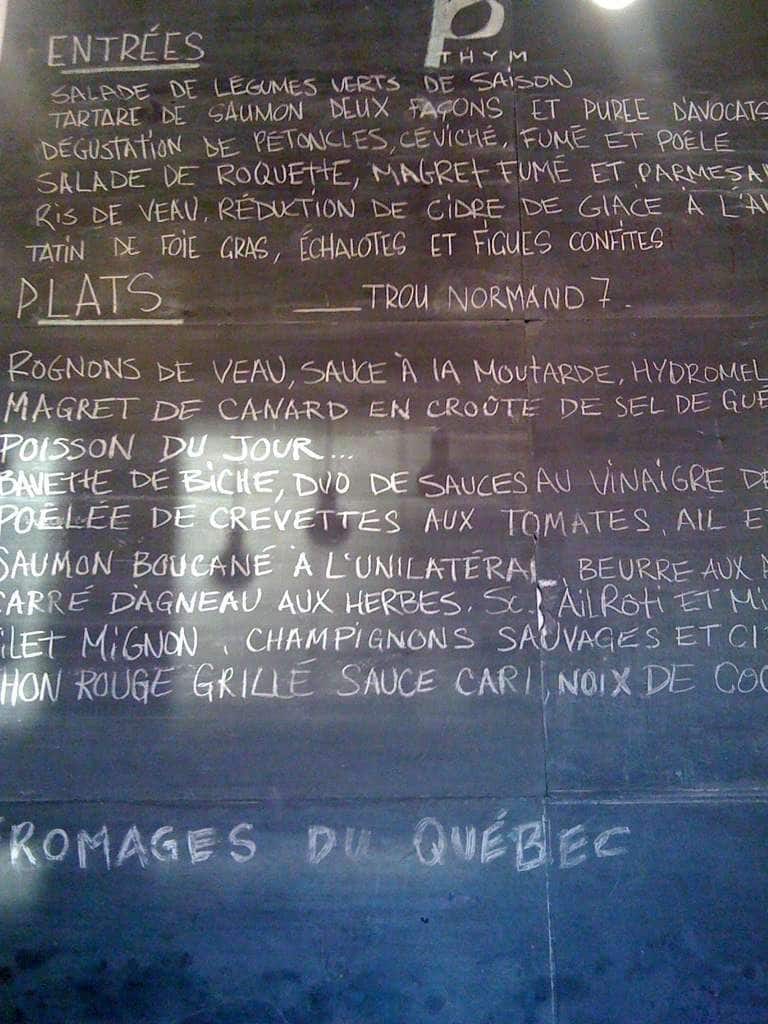 P
THYM
ENTRÉES
SALADE DE LÉGUMES VERTS DE SAISON
TARTARE DE SAUMON DEUX FAÇONS ET PUREE D'AVOCATS
DÉGUSTATION DE PÉTONCLES, CÉVICHÉ, FUMÉ ET POÊLÉ
SALADE DE ROQUETTE, MAGRET FUMÉ ET PARMESA
RIS DE VEAU, RÉDUCTION DE CIDRE DE GLACE À L'A
TATIN DE FOIE GRAS, ÉCHALOTES ET FIGUES CONFITES
PLATS TROU NORMAND 7.
ROGNONS DE VEAU, SAUCE À LA MOUTARDE, HYDROMEL
MAGRET DE CANARD EN CROÛTE DE SEL DE GUÉ
POISSON DU JOUR...
BAVETTE DE BICHE, DUO DE SAUCES AU VINAIGRE DE
POÊLÉE DE CREVETTES AUX TOMATES, AIL E
SAUMON BOUCANÉ À L'UNILATÉRAL, BEURRE AUX
CARRÉ D'AGNEAU AUX HERBES, SC. AIL RÔTI ET MI
ILET MIGNON, CHAMPIGNONS SAUVAGES ET CI
HON ROUGE GRILLÉ SAUCE CARI, NOIX DE COC
ROMAGES DU QUÉBEC